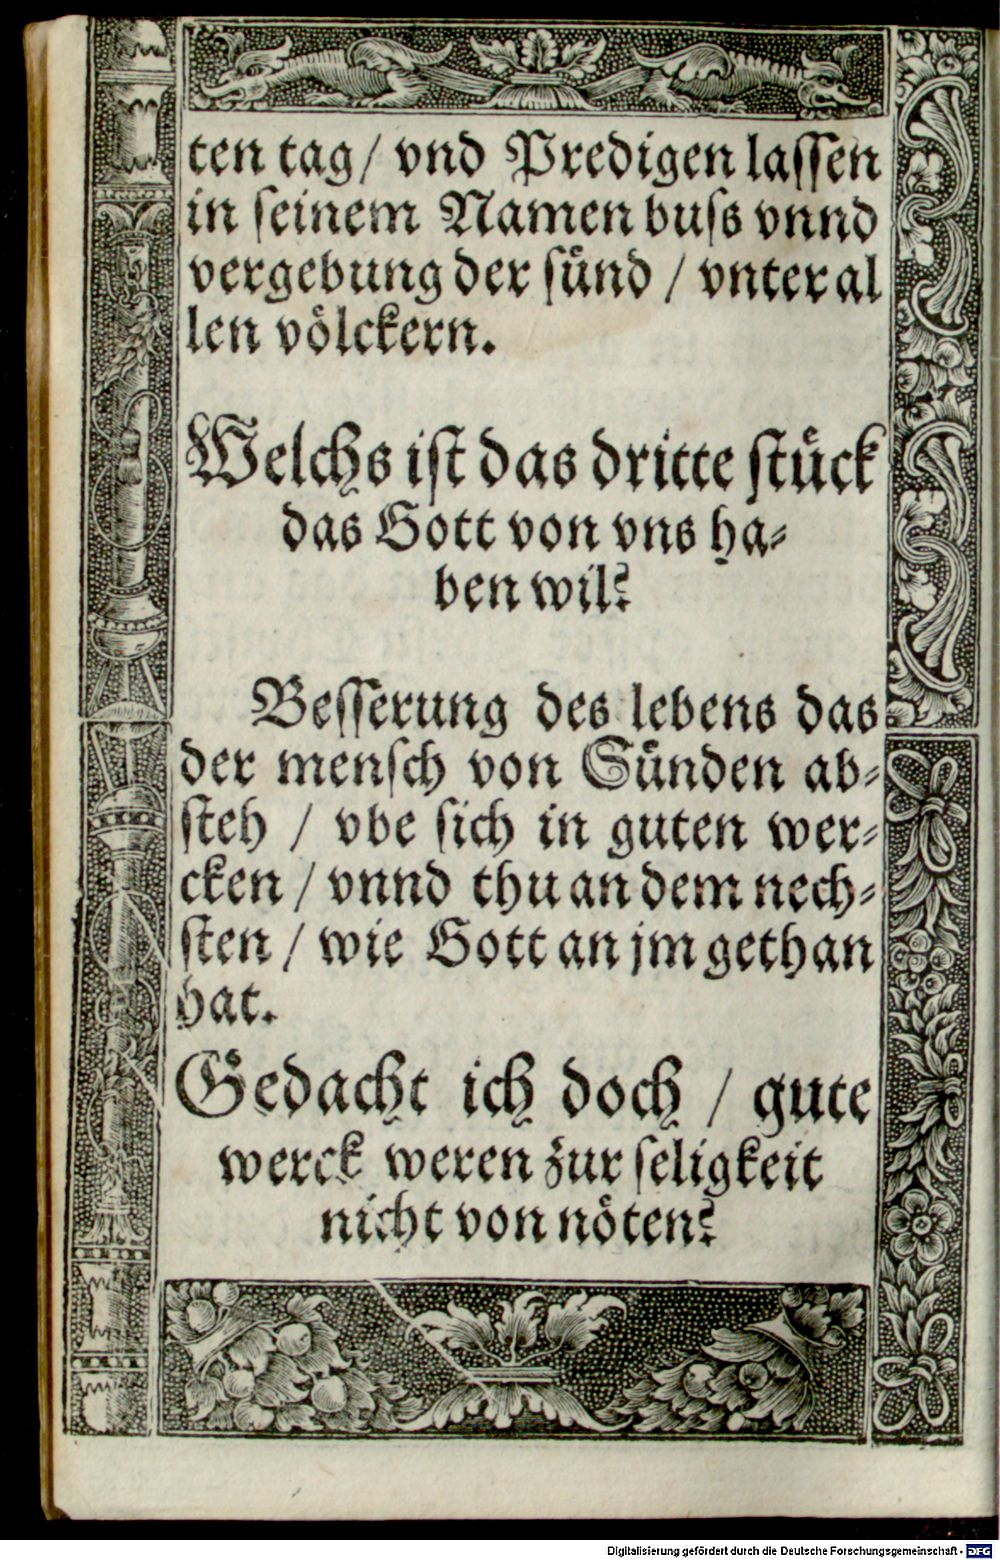 ten tag / vnd Predigen lassen
in seinem Namen buss vnnd
vergebung der sünd / vnter al
len völckern.
Welchs ist das dritte stück
das Gott von vns ha-
ben wil?
Besserung des lebens das
der mensch von Sünden ab-
steh / vbe sich in guten wer-
cken / vnnd thu an dem nech-
sten / wie Gott an jm gethan
hat.
Gedacht ich doch / gute
werck weren zur seligkeit
nicht von nöten?
Digitalisierung gefördert durch die Deutsche Forschungsgemeinschaft - DFG